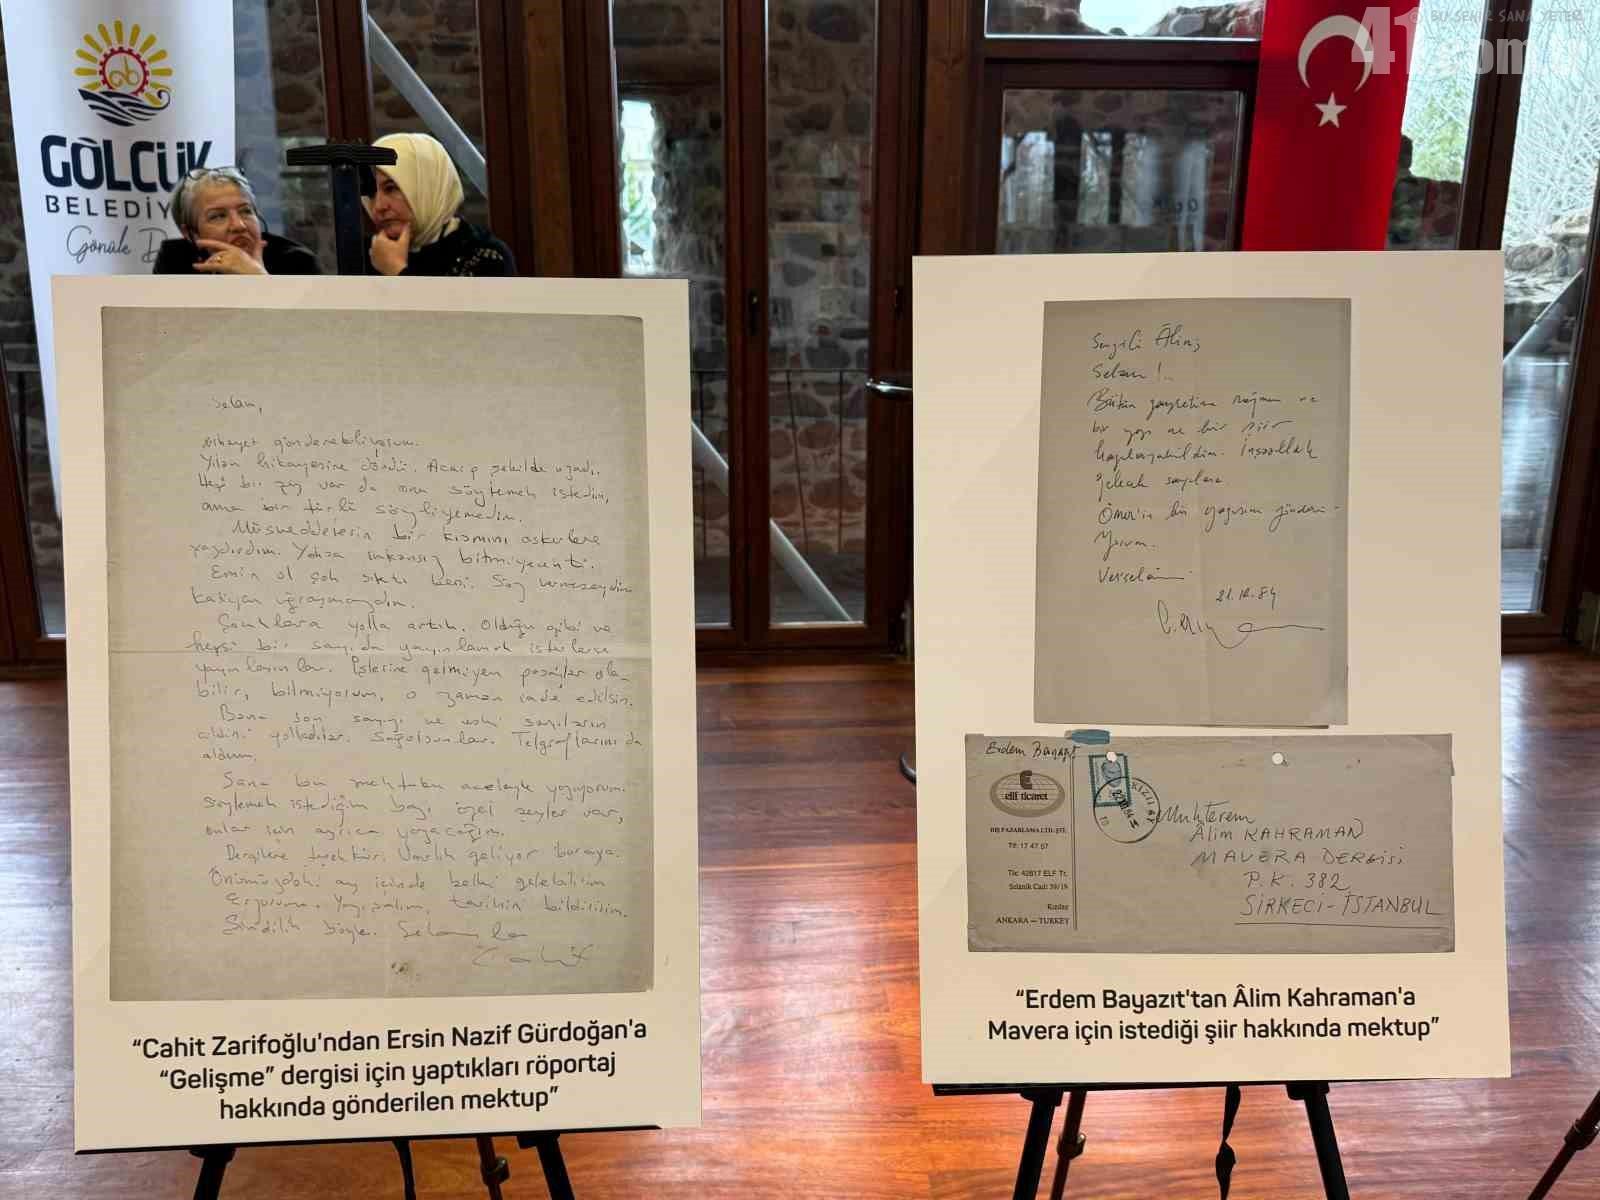 GÖLCÜK
BELEDİY
Gönüle
41
BU ŞEHİR SANA YETER
Selam,
Nihayet gönderebiliyorum.
Yılan hikayesine döndü. Acaip şekilde uzadı.
Hepsi bir şey var da ama söylemek istedim,
ama bir türlü söyliyemedim.
Müsveddelerin bir kısmını askerlere
yazdırdım. Yoksa imkansız bitmiyecekti.
Emin ol çok sıktı beni. Söz vermeseydim
katiyen uğraşmazdım.
yolla artık. Olduğu gibi ve
hepsi bir sayıda yayınlamak isterlerse
yayınlasınlar. İşlerine gelmiyen pasajlar ola-
bilir, bilmiyorum, o zaman iade edilsin.
Bana son sayıyı ve eski sayıların
yolladılar. Sağolsunlar. Telgraflarını da
aldım.
Sana bu mektubu aceleyle yazıyorum.
Söylemek istediğim bazı özel şeyler var,
onlar için ayrıca yazacağım.
Dergilere teşekkür. Varlık geliyor buraya.
Önümüzdeki ay içinde belki gelebilirim
Erzuruma. tarihini bildiririm.
Şimdilik böyle. Selamlar
Cahit
“Cahit Zarifoğlu'ndan Ersin Nazif Gürdoğan'a
“Gelişme” dergisi için yaptıkları röportaj
hakkında gönderilen mektup”
Sevgili Âlim,
Selam!..
Bütün gayretime rağmen ne
bir yazı ne bir şiir
hazırlayabildim. İnşaallah
gelecek sayılara.
Ömer'in bir yazısını gönderi-
yorum.
Vesselâm
21.12.84
Erdem Bayazıt
elif ticaret
DIŞ PAZARLAMA LTD. ŞTİ.
Tlf: 17 47 57
Tlx: 42817 ELF Tr.
Selânik Cad: 39/19
Kızılay
ANKARA — TURKEY
KIZILAY
Muhterem
Âlim KAHRAMAN
MAVERA DERGİSİ
P.K. 382
SİRKECİ-İSTANBUL
“Erdem Bayazıt'tan Âlim Kahraman'a
Mavera için istediği şiir hakkında mektup”